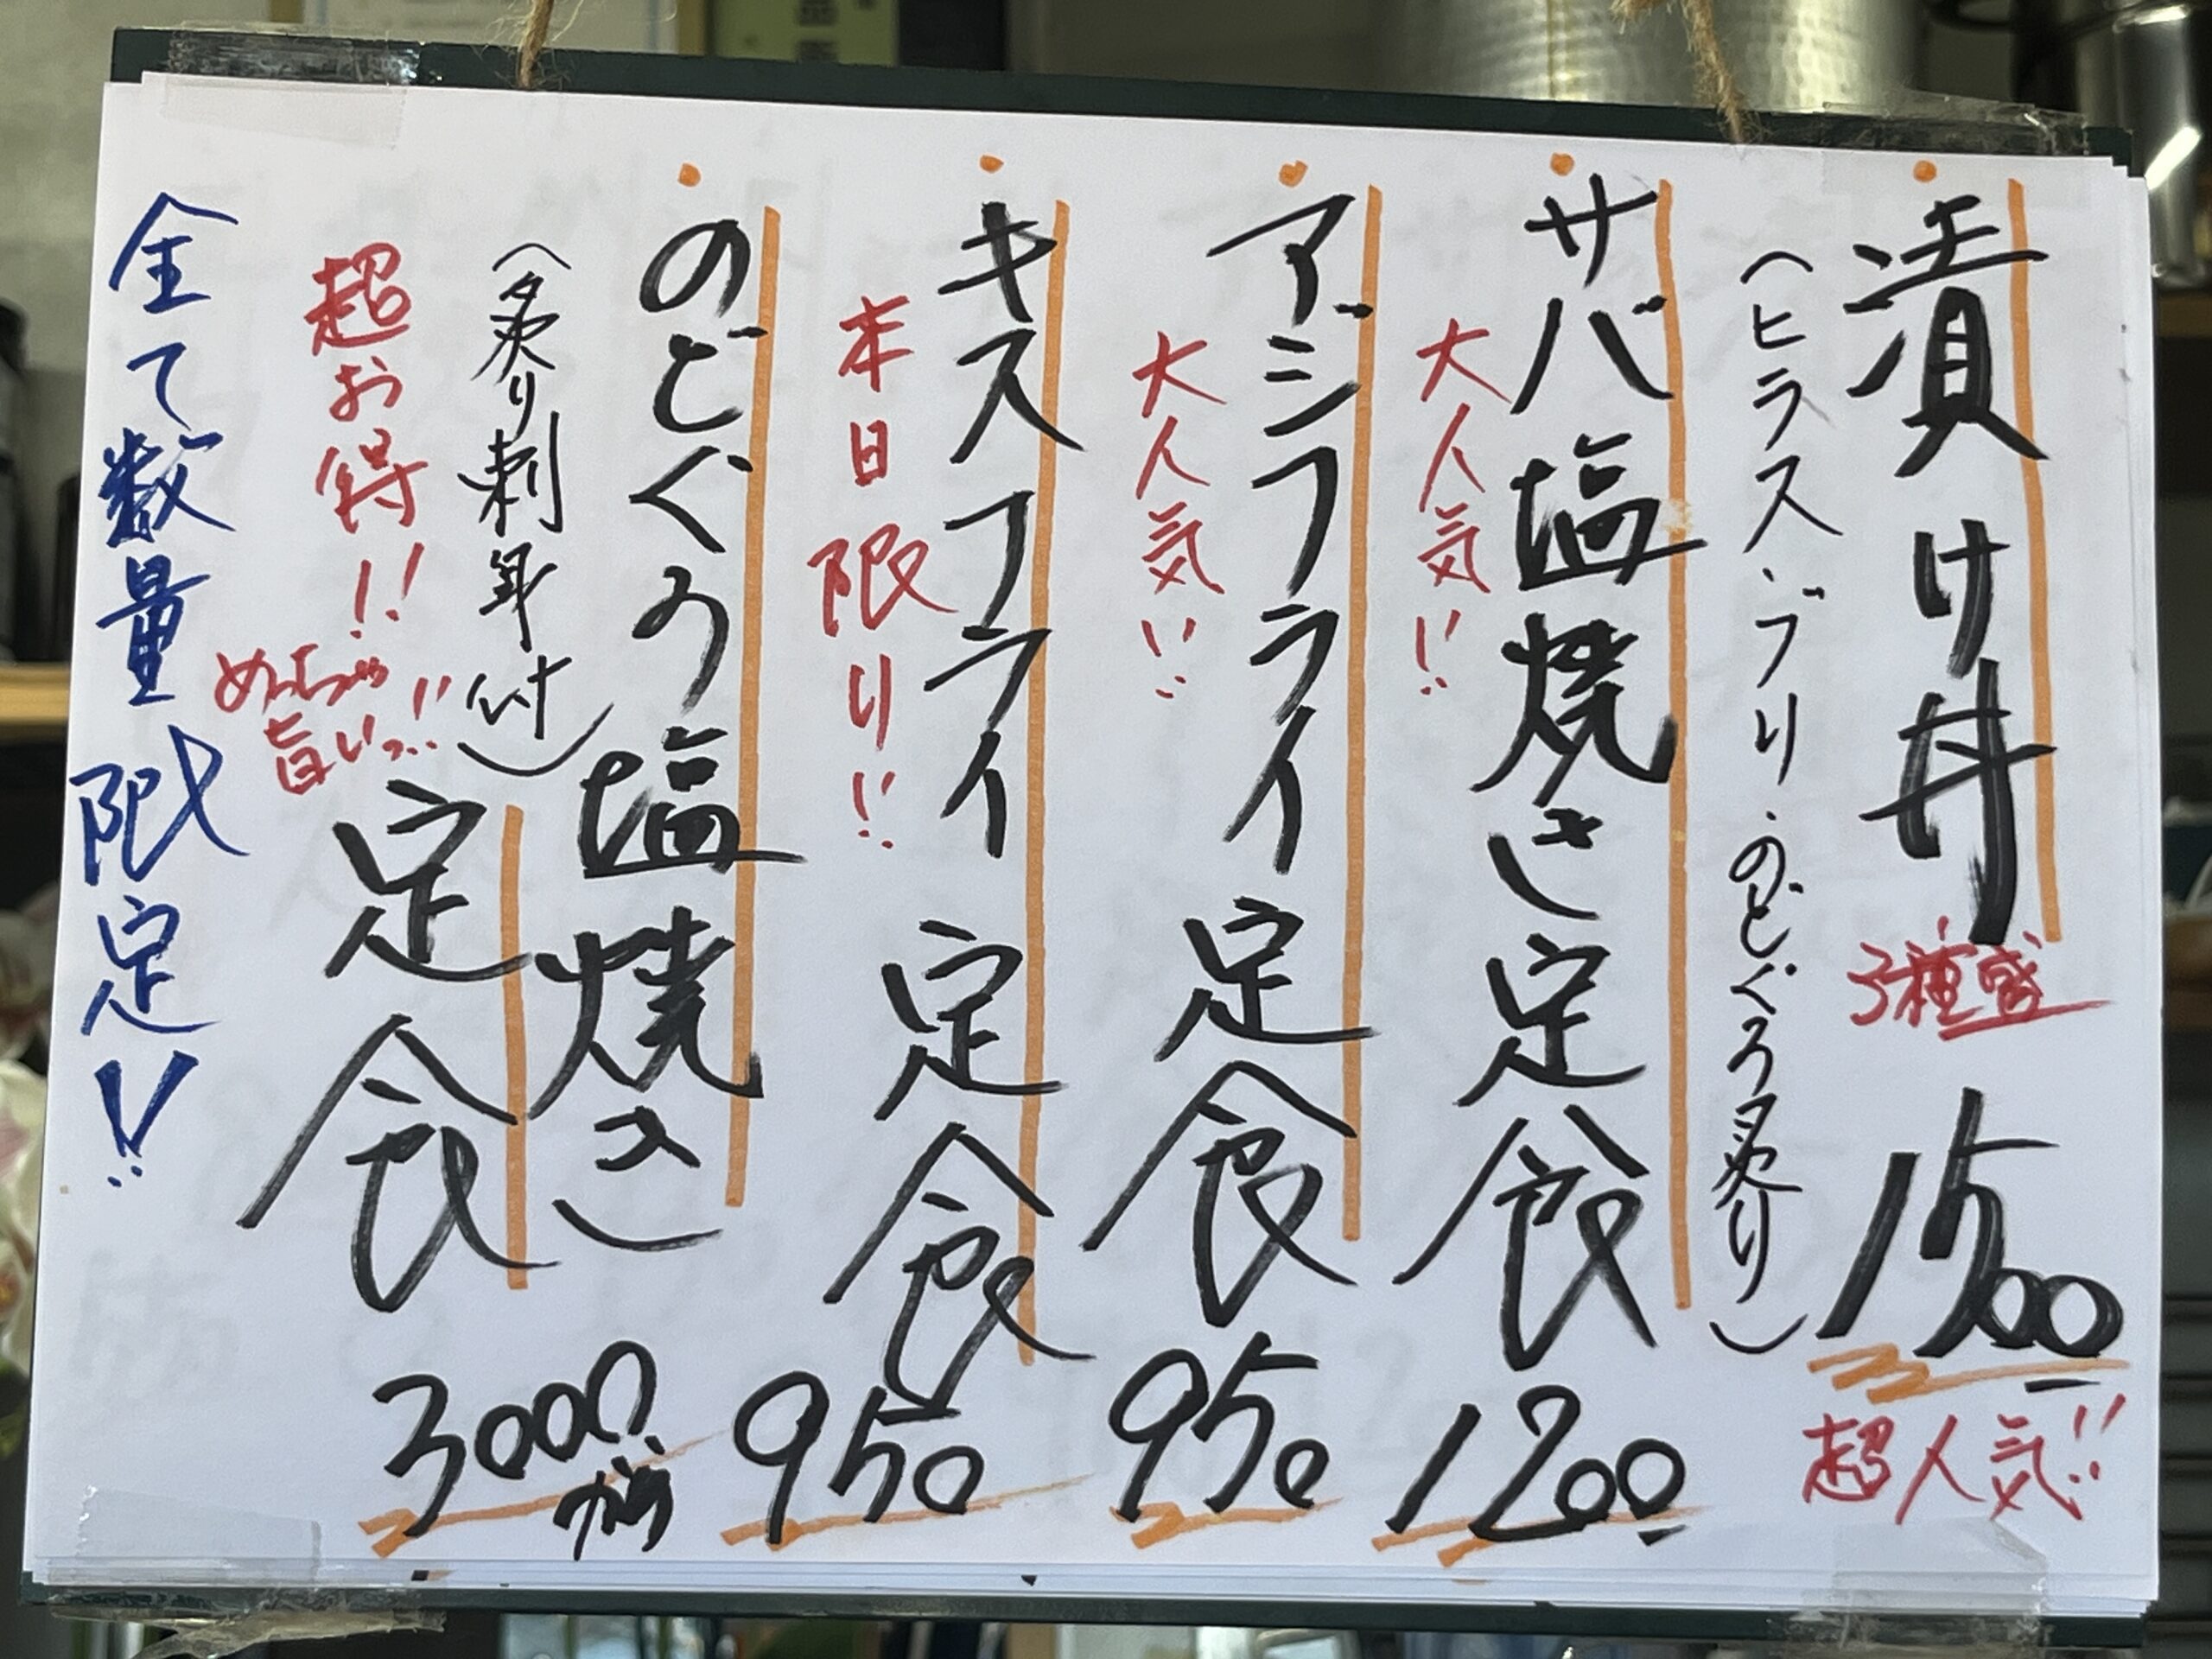 漬け丼 3種盛 1500
超人気!!
(ヒラス・ブリ・のどぐろ炙り)
サバ塩焼き定食 1200
大人気!!
アジフライ定食 950
大人気!!
キスフライ定食 950
本日限り!!
のどぐろ塩焼き
(炙り刺身付)
定食 3000
から
超お得!!
めっちゃ
旨いっ!!
全て数量限定!!